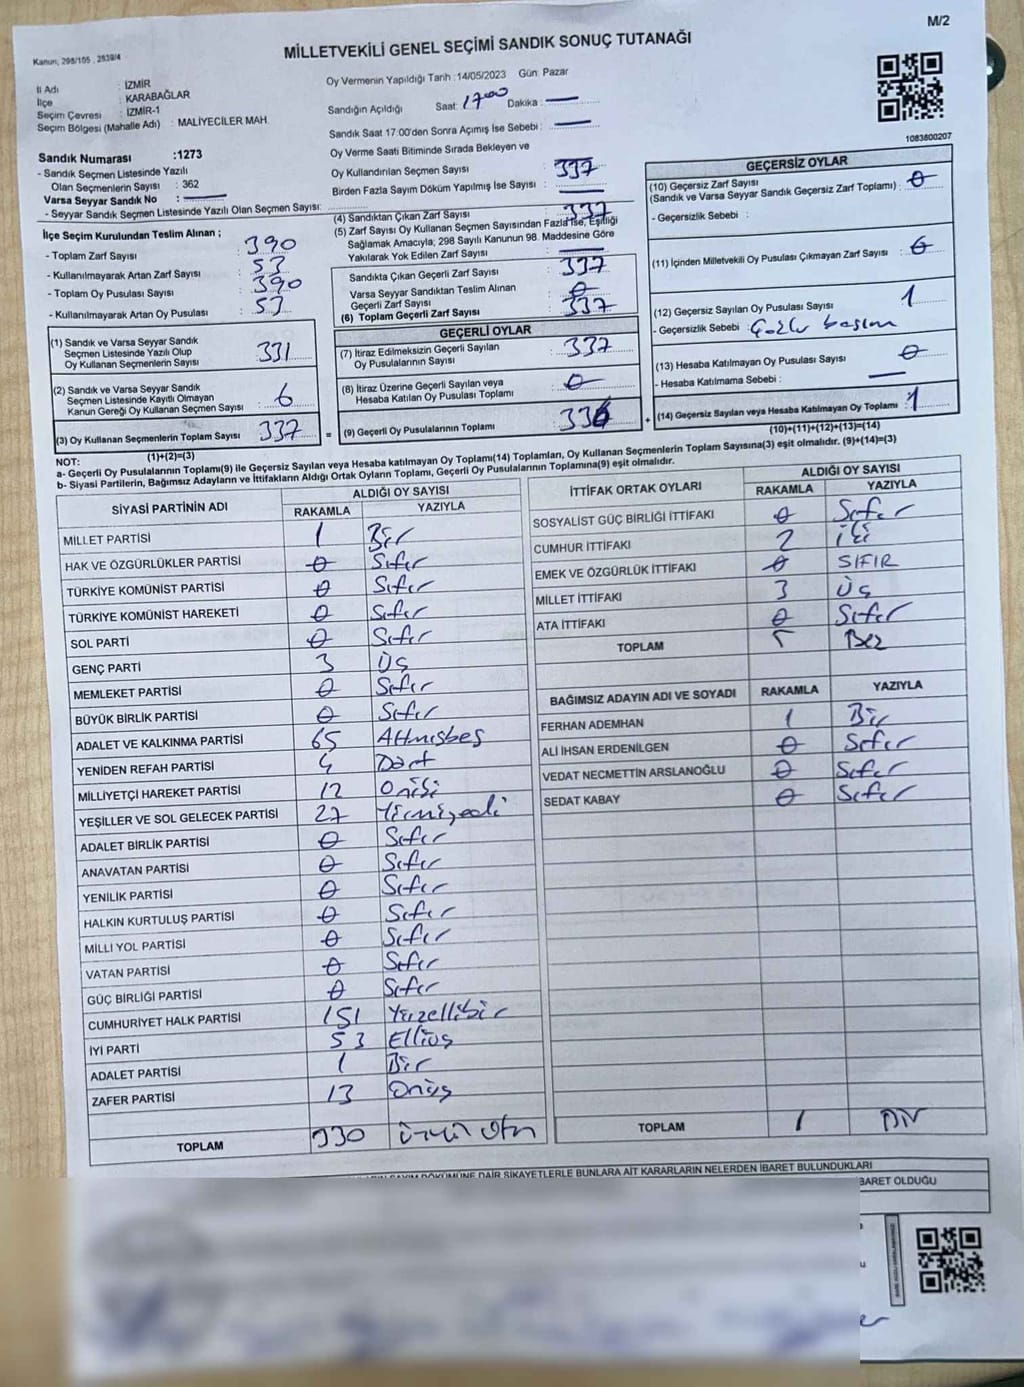 M/2
Kanun, 298/105 , 2839/4
MİLLETVEKİLİ GENEL SEÇİMİ SANDIK SONUÇ TUTANAĞI
İl Adı : İZMİR
İlçe : KARABAĞLAR
Seçim Çevresi : İZMİR-1
Seçim Bölgesi (Mahalle Adı) : MALİYECİLER MAH.
Sandık Numarası :1273
- Sandık Seçmen Listesinde Yazılı
Olan Seçmenlerin Sayısı : 362
Varsa Seyyar Sandık No :
- Seyyar Sandık Seçmen Listesinde Yazılı Olan Seçmen Sayısı:
İlçe Seçim Kurulundan Teslim Alınan ;
- Toplam Zarf Sayısı : 390
- Kullanılmayarak Artan Zarf Sayısı : 53
- Toplam Oy Pusulası Sayısı : 390
- Kullanılmayarak Artan Oy Pusulası : 53
(1) Sandık ve Varsa Seyyar Sandık
Seçmen Listesinde Yazılı Olup
Oy Kullanan Seçmenlerin Sayısı : 331
(2) Sandık ve Varsa Seyyar Sandık
Seçmen Listesinde Kayıtlı Olmayan
Kanun Gereği Oy Kullanan Seçmen Sayısı : 6
(3) Oy Kullanan Seçmenlerin Toplam Sayısı : 337
(1)+(2)=(3)
Oy Vermenin Yapıldığı Tarih :14/05/2023 Gün: Pazar
Sandığın Açıldığı Saat: 17 00 Dakika :
Sandık Saat 17:00'den Sonra Açımış İse Sebebi :
Oy Verme Saati Bitiminde Sırada Bekleyen ve
Oy Kullandırılan Seçmen Sayısı : 337
Birden Fazla Sayım Döküm Yapılmış İse Sayısı :
(4) Sandıktan Çıkan Zarf Sayısı : 337
(5) Zarf Sayısı Oy Kullanan Seçmen Sayısından Fazla İse, Eşitliği
Sağlamak Amacıyla, 298 Sayılı Kanunun 98. Maddesine Göre
Yakılarak Yok Edilen Zarf Sayısı :
Sandıkta Çıkan Geçerli Zarf Sayısı : 337
Varsa Seyyar Sandıktan Teslim Alınan
Geçerli Zarf Sayısı : 0
(6) Toplam Geçerli Zarf Sayısı : 337
GEÇERLİ OYLAR
(7) İtiraz Edilmeksizin Geçerli Sayılan
Oy Pusulalarının Sayısı : 337
(8) İtiraz Üzerine Geçerli Sayılan veya
Hesaba Katılan Oy Pusulası Toplamı : 0
= (9) Geçerli Oy Pusulalarının Toplamı : 336 +
1083800207
GEÇERSİZ OYLAR
(10) Geçersiz Zarf Sayısı
(Sandık ve Varsa Seyyar Sandık Geçersiz Zarf Toplamı) : 0
- Geçersizlik Sebebi :
(11) İçinden Milletvekili Oy Pusulası Çıkmayan Zarf Sayısı : 0
(12) Geçersiz Sayılan Oy Pusulası Sayısı : 1
- Geçersizlik Sebebi :
(13) Hesaba Katılmayan Oy Pusulası Sayısı : 0
- Hesaba Katılmama Sebebi :
(14) Geçersiz Sayılan veya Hesaba Katılmayan Oy Toplamı : 1
(10)+(11)+(12)+(13)=(14)
NOT:
a- Geçerli Oy Pusulalarının Toplamı(9) ile Geçersiz Sayılan veya Hesaba katılmayan Oy Toplamı(14) Toplamları, Oy Kullanan Seçmenlerin Toplam Sayısına(3) eşit olmalıdır. (9)+(14)=(3)
b- Siyasi Partilerin, Bağımsız Adayların ve İttifakların Aldığı Ortak Oyların Toplamı, Geçerli Oy Pusulalarının Toplamına(9) eşit olmalıdır.
SİYASİ PARTİNİN ADI ALDIĞI OY SAYISI
RAKAMLA YAZIYLA
MİLLET PARTİSİ 1 Bir
HAK VE ÖZGÜRLÜKLER PARTİSİ 0 Sıfır
TÜRKİYE KOMÜNİST PARTİSİ 0 Sıfır
TÜRKİYE KOMÜNİST HAREKETİ 0 Sıfır
SOL PARTİ 0 Sıfır
GENÇ PARTİ 3 Üç
MEMLEKET PARTİSİ 0 Sıfır
BÜYÜK BİRLİK PARTİSİ 0 Sıfır
ADALET VE KALKINMA PARTİSİ 65 Altmışbeş
YENİDEN REFAH PARTİSİ 4 Dört
MİLLİYETÇİ HAREKET PARTİSİ 12 Oniki
YEŞİLLER VE SOL GELECEK PARTİSİ 27 Yirmiyedi
ADALET BİRLİK PARTİSİ 0 Sıfır
ANAVATAN PARTİSİ 0 Sıfır
YENİLİK PARTİSİ 0 Sıfır
HALKIN KURTULUŞ PARTİSİ 0 Sıfır
MİLLİ YOL PARTİSİ 0 Sıfır
VATAN PARTİSİ 0 Sıfır
GÜÇ BİRLİĞİ PARTİSİ 0 Sıfır
CUMHURİYET HALK PARTİSİ 151 Yüzellibir
İYİ PARTİ 53 Elliüç
ADALET PARTİSİ 1 Bir
ZAFER PARTİSİ 13 Onüç
TOPLAM 330
İTTİFAK ORTAK OYLARI ALDIĞI OY SAYISI
RAKAMLA YAZIYLA
SOSYALİST GÜÇ BİRLİĞİ İTTİFAKI 0 Sıfır
CUMHUR İTTİFAKI 2 iki
EMEK VE ÖZGÜRLÜK İTTİFAKI 0 SIFIR
MİLLET İTTİFAKI 3 Üç
ATA İTTİFAKI 0 Sıfır
TOPLAM 5 Beş
BAĞIMSIZ ADAYIN ADI VE SOYADI RAKAMLA YAZIYLA
FERHAN ADEMHAN 1 Bir
ALİ İHSAN ERDENİLGEN 0 Sıfır
VEDAT NECMETTİN ARSLANOĞLU 0 Sıfır
SEDAT KABAY 0 Sıfır
TOPLAM 1 Bir
DÖKÜMÜNE DAİR ŞİKAYETLERLE BUNLARA AİT KARARLARIN NELERDEN İBARET BULUNDUKLARI
BARET OLDUĞU